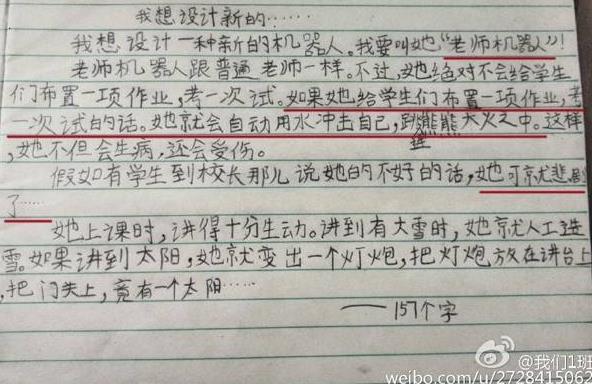 我想设计新的……
我想设计一种新的机器人。我要叫她“老师机器人”!
老师机器人跟普通老师一样。不过,她绝对不会给学生
们布置一项作业,考一次试。如果她给学生们布置一项作业,考
一次试的话。她就会自动用水冲击自己,跳进熊熊大火之中。这样
,她不但会生病,还会受伤。
假如有学生到校长那儿说她的不好的话,她可就悲剧
了……
她上课时,讲得十分生动。讲到有大雪时,她就人工造
雪。如果讲到太阳,她就变出一个灯炮,把灯炮放在讲台上
,把门关上,竟有一个太阳……
——157个字
@我们1班
weibo.com/u/2728415062